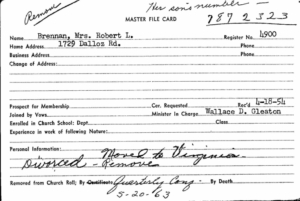 Remove
Her son's number —
MASTER FILE CARD
787 2323
Name Brennan, Mrs. Robert L. Register No. 4900
Home Address 1729 Dalloz Rd. Phone
Business Address Phone
Change of Address:
Prospect for Membership Cor. Requested Rec'd. 4-18-54
Joined by Vows Minister in Charge Wallace D. Gleaton
Enrolled in Church School: Dept. Class
Experience in work of following Nature:
Personal Information: Moved to Virginia.
Divorced - Remove
Removed from Church Roll: By Certificate Quarterly Conf. By Death
5-20-63